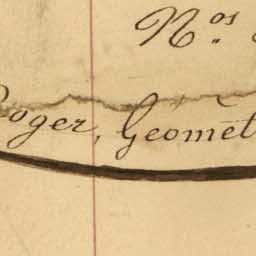 Nos.
oger, Geomet